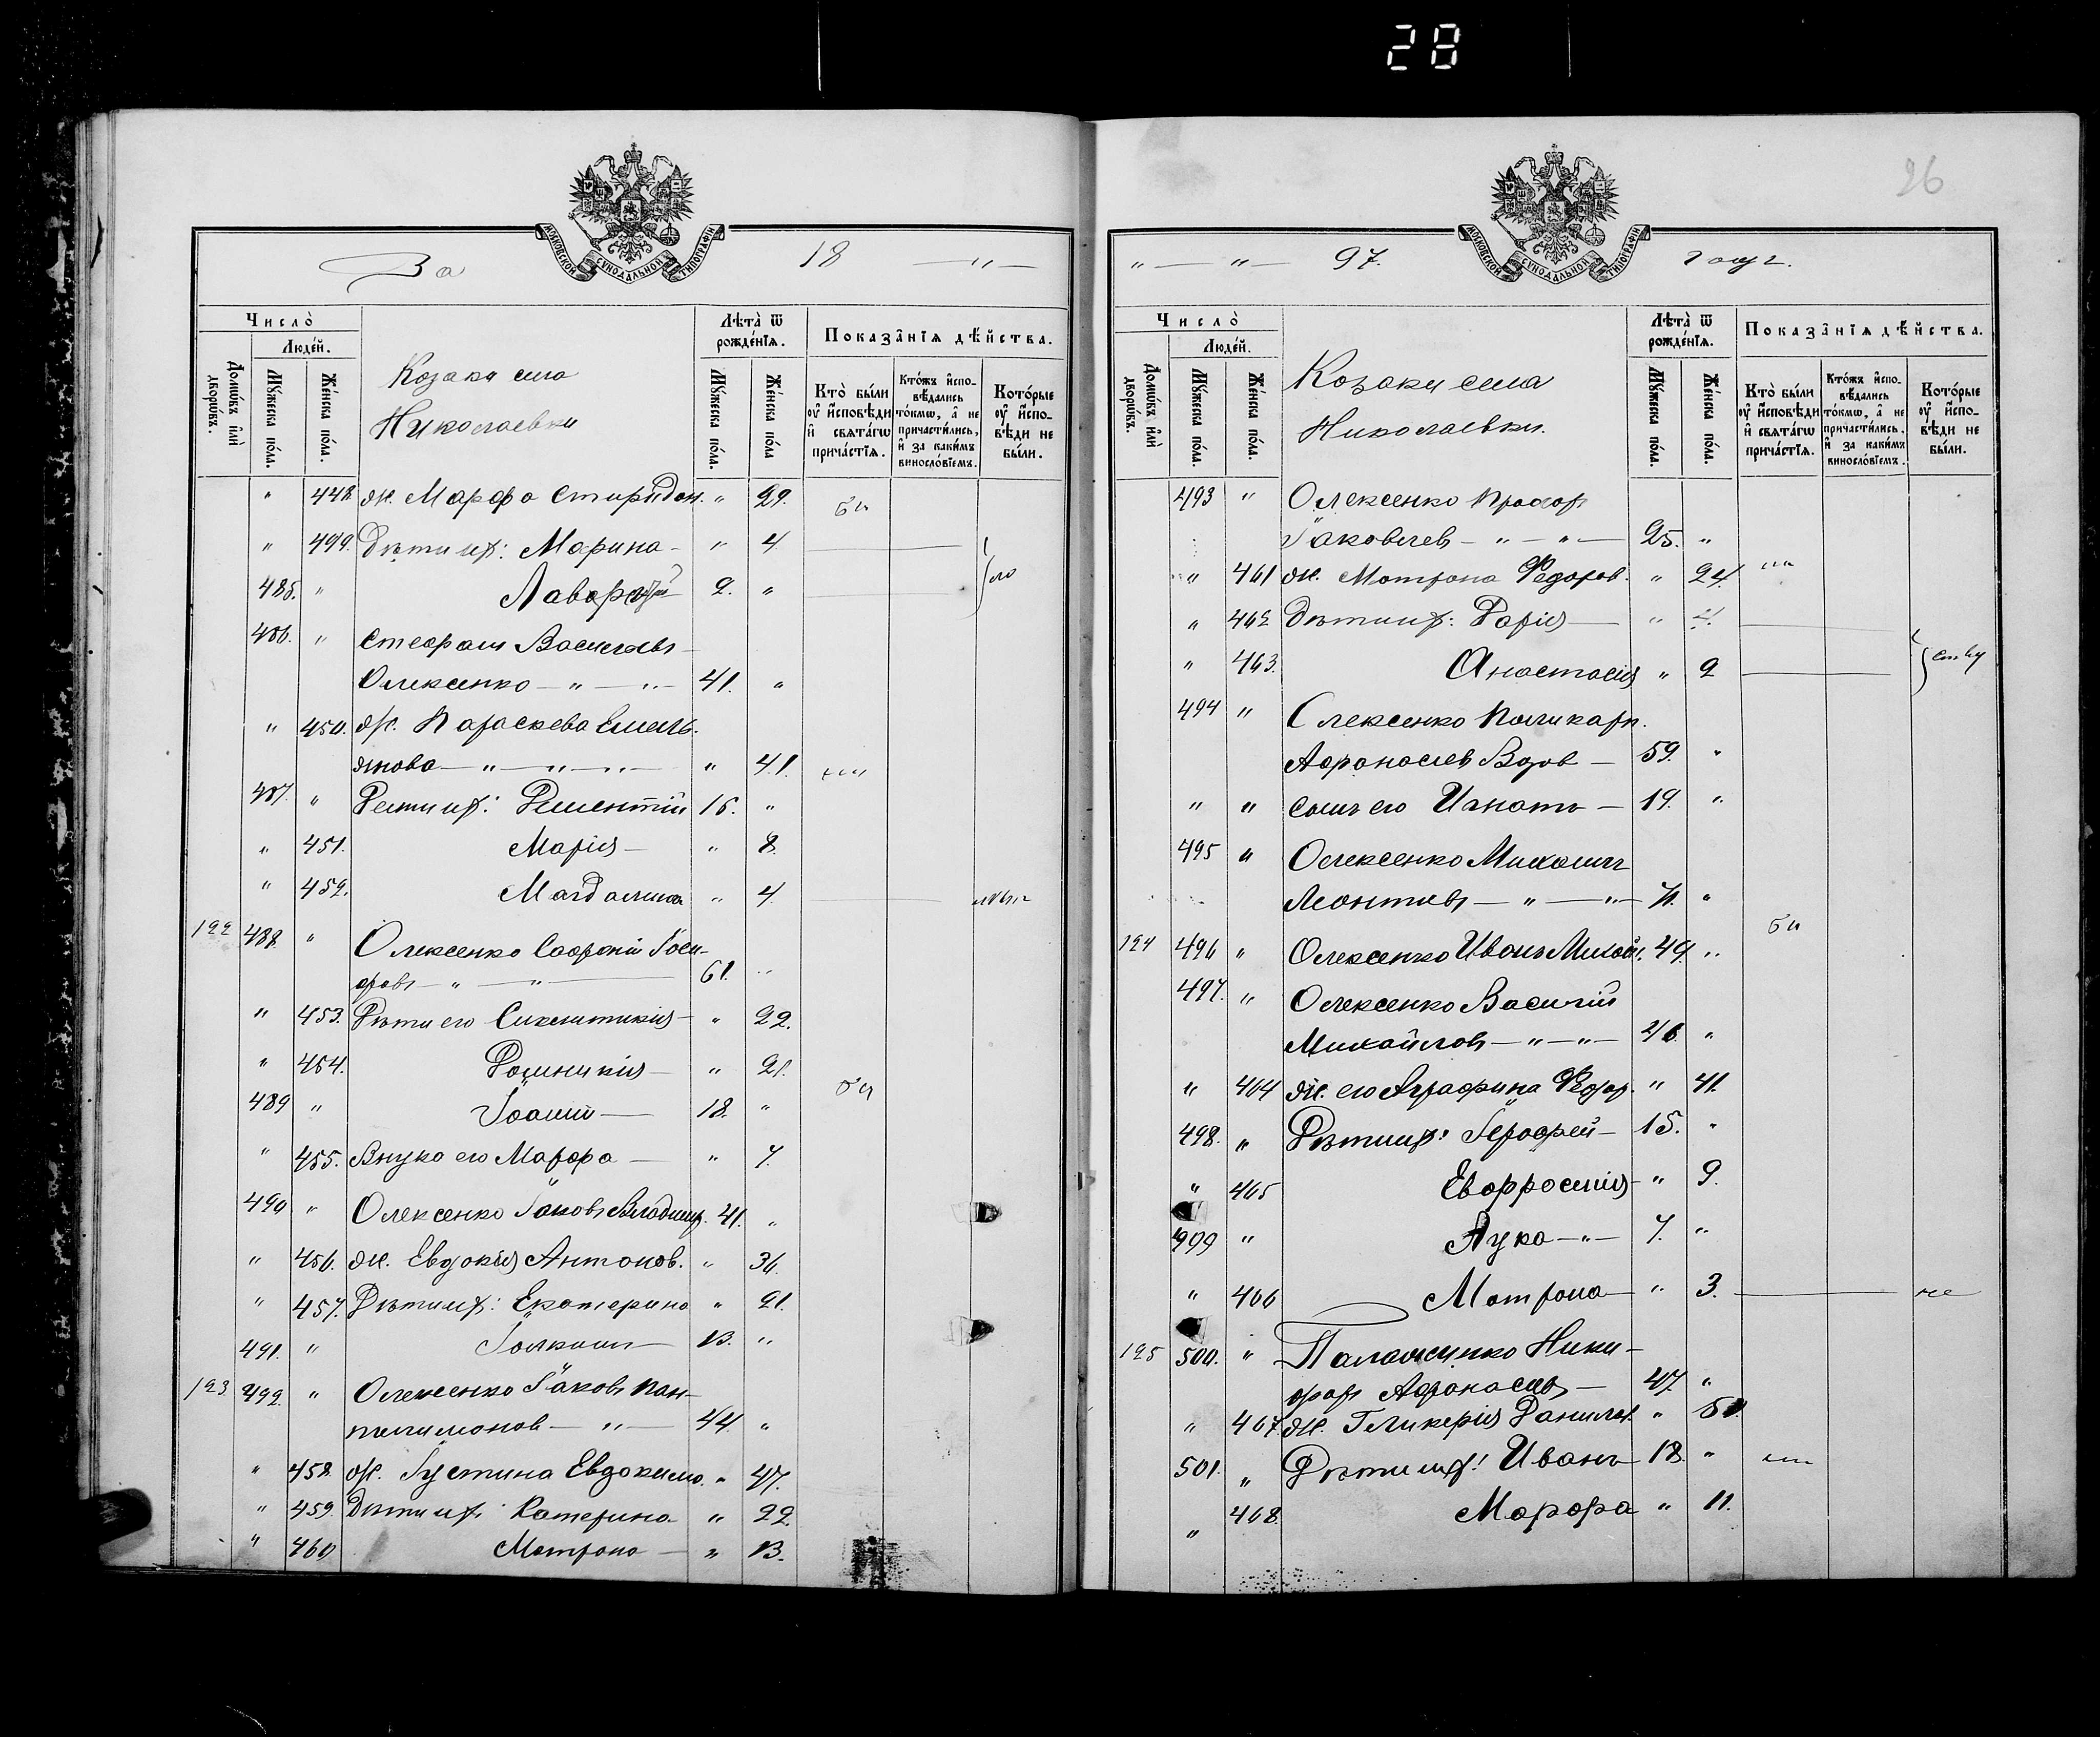 28
26
МОСКОВСКОЙ СѴНОДАЛЬНОЙ ТИПОГРАФІИ
За 18 — " —
Число̀
Людéй.
Домѡ́въ и҆лѝ дворѡ́въ.
Мꙋ́жеска по́ла.
Же́нска по́ла.
Козаки села
Николаевки
Лѣта̀ ѿ рожде́нїѧ.
Мꙋ́жеска по́ла.
Же́нска по́ла
Показа̑нїѧ дѣ́йства.
Кто̀ бы́ли ᲂу҆ и҆сповѣди и҆ свѧта́гѡ прича́стїѧ.
Кто́жъ и҆спо-
вѣ́дались
то́кмѡ, а҆ не
причасти́лись,
и҆ за каки́мъ
винослóвїемъ.
Кото́рые
ᲂу҆ и҆спо-
вѣди не
бы́ли.
" 448. ж. Марфа Спиридон. " 29. бы
" 449. Дѣти ихъ: Марина — " 4
485. " 2. "
486. " Стефанъ Васильевъ
Олексенко — " — " — 41. "
" 450. ж. Параскева Емель-
янова — " — " — " — " 41.
487. " Дѣти ихъ: 16. "
" 451. Марія — " 8.
" 452. Магдалина " 4.
122 488. " Олексенко Софроній
— " — " — 61. "
" 453. Дѣти его Синклитикія — " 22.
" 454. Домникія — " 21.
489 " Іоаннъ — 18. " бы
" 455. Внука его Марфа — " 7.
490 " Олексенко Іаковъ Владимір. 41. "
" 456. ж. Евдокія Антонов. " 36.
" 457. Дѣти ихъ: Екатерина " 21.
491. " Іоакимъ — 13. "
123 492. " Олексенко Іаковъ Пан-
телимонов — " — 44. "
" 458. ж. Іустина Евдокимо. " 47.
" 459. Дѣти ихъ Катерина " 22.
" 460 Матрона — " 13.
МОСКОВСКОЙ СѴНОДАЛЬНОЙ ТИПОГРАФІИ
" — " — 97. годъ.
Число̀
Людéй.
Домѡ́въ и҆лѝ дворѡ́въ.
Мꙋ́жеска по́ла.
Же́нска по́ла.
Козаки села
Николаевки.
Лѣта̀ ѿ рожде́нїѧ.
Мꙋ́жеска по́ла.
Же́нска по́ла.
Показа̑нїѧ дѣ́йства.
Кто̀ бы́ли ᲂу҆ и҆сповѣди и҆ свѧта́гѡ прича́стїѧ.
Кто́жъ и҆спо-
вѣ́дались
то́кмѡ, а҆ не
причасти́лись,
и҆ за каки́мъ
винослóвїемъ.
Кото́рые
ᲂу҆ и҆спо-
вѣди не
бы́ли.
493 " Олексенко Прохор
Іаковлев — " — " — 25. "
" 461 ж. Матрона Федоров. " 24.
" 462 Дѣти ихъ: Дарія — " 4.
" 463. Анастасія " 2
494 " Олексенко Поликарп.
Афанасиев Вдов — 59. "
" " сынъ его Игнатъ — 19. "
495 " Олексенко Михаилъ
Леонтиевъ — " — " — 71. "
124 496 " Олексенко Иванъ Михай. 49. " бы
497. " Олексенко Василій
Михайловъ — " — " — 46. "
" 464 ж. его Аграфина Федор. " 41.
498. " Дѣти ихъ: Іерофей — 15. "
" 465 Евфросинія — " 9.
499 " Лука — " — 7. "
" 466 Матрона — " 3. не
125 500. " Ники-
форъ Афанасиевъ — 47. "
" 467. ж. Гликерія Данилов. " 50.
501. " Дѣти ихъ: Иванъ 18. "
" 468. Марфа " 11.